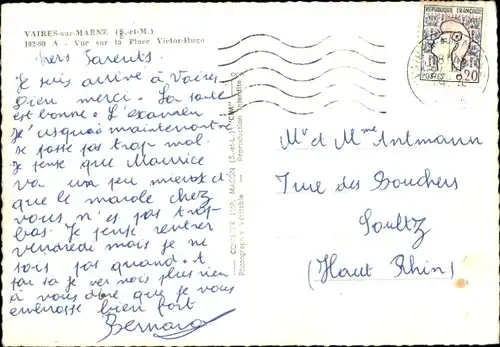 VAIRES-sur-MARNE (S.-et-M.)
102-90 A - Vue sur la Place Victor-Hugo
chers Parents.
Je suis arrivé à Vaires
bien merci. La santé
est bonne. L'examen
J'usquà maintenant
se passe pas trop mal.
Je pense que Maurice
va un peu mieux et
que le morale chez
vous n'es pas trop
bas. Je pense rentrer
vendredi mais je ne
sais pas quand. A
par sa je ver vois plus rien
à vous dire que je vous
embrasse bien fort
Bernard
COMBIER IMP. MACON (S.-et-L.) "CIM"
Photographie Véritable - Reproduction Interdite
REPUBLIQUE FRANÇAISE
POSTES 0,20
Mr et Mme Antmann
rue des Bouchers
Soultz
(Haut Rhin)